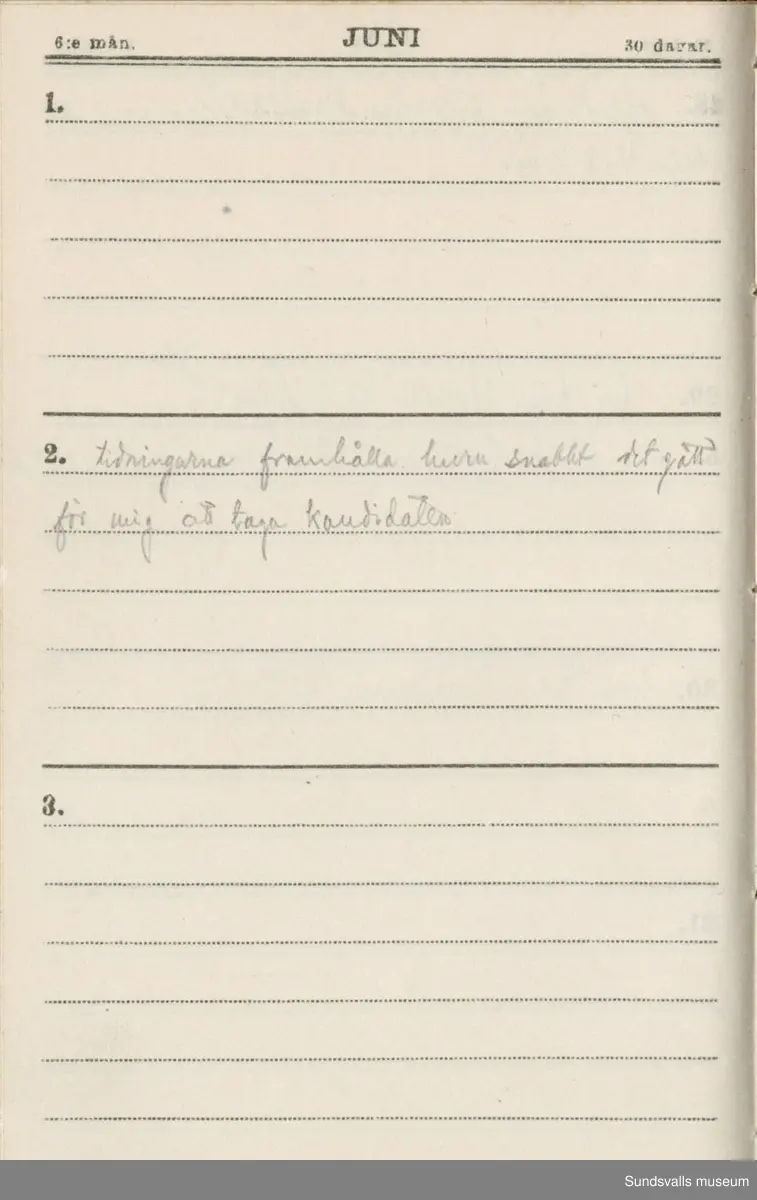 6:e mån. JUNI 30 dagar.
1.
2. tidningarna framhålla huru snabbt det gått
för mig att taga kandidaten
3.
Sundsvalls museum